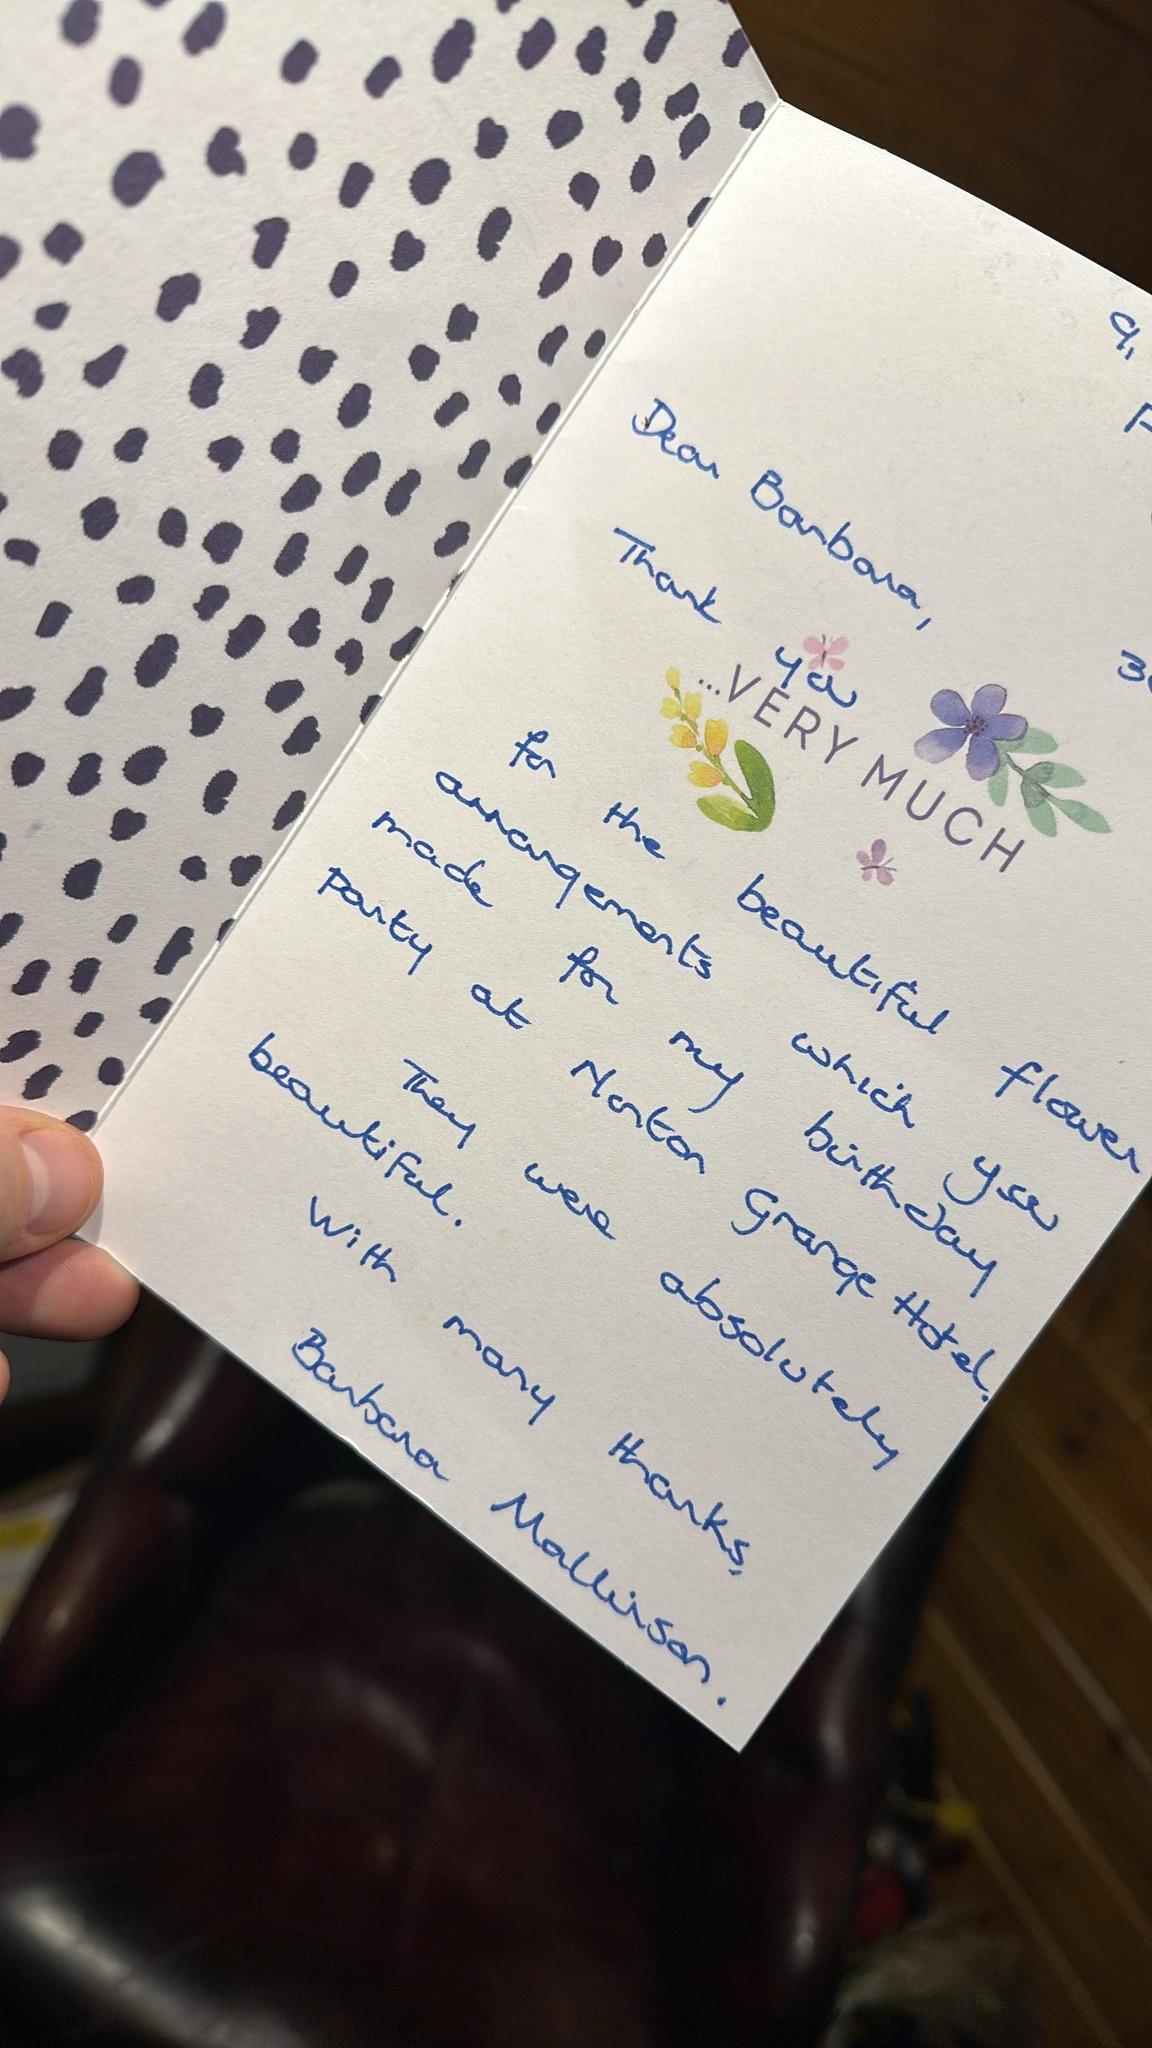 9,
Dear Barbara,
Thank you
...VERY MUCH
for the beautiful flower
arrangements which you
made for my birthday
party at Norton Grange Hotel.
They were absolutely
beautiful.
With many thanks,
Barbara Mallinson.